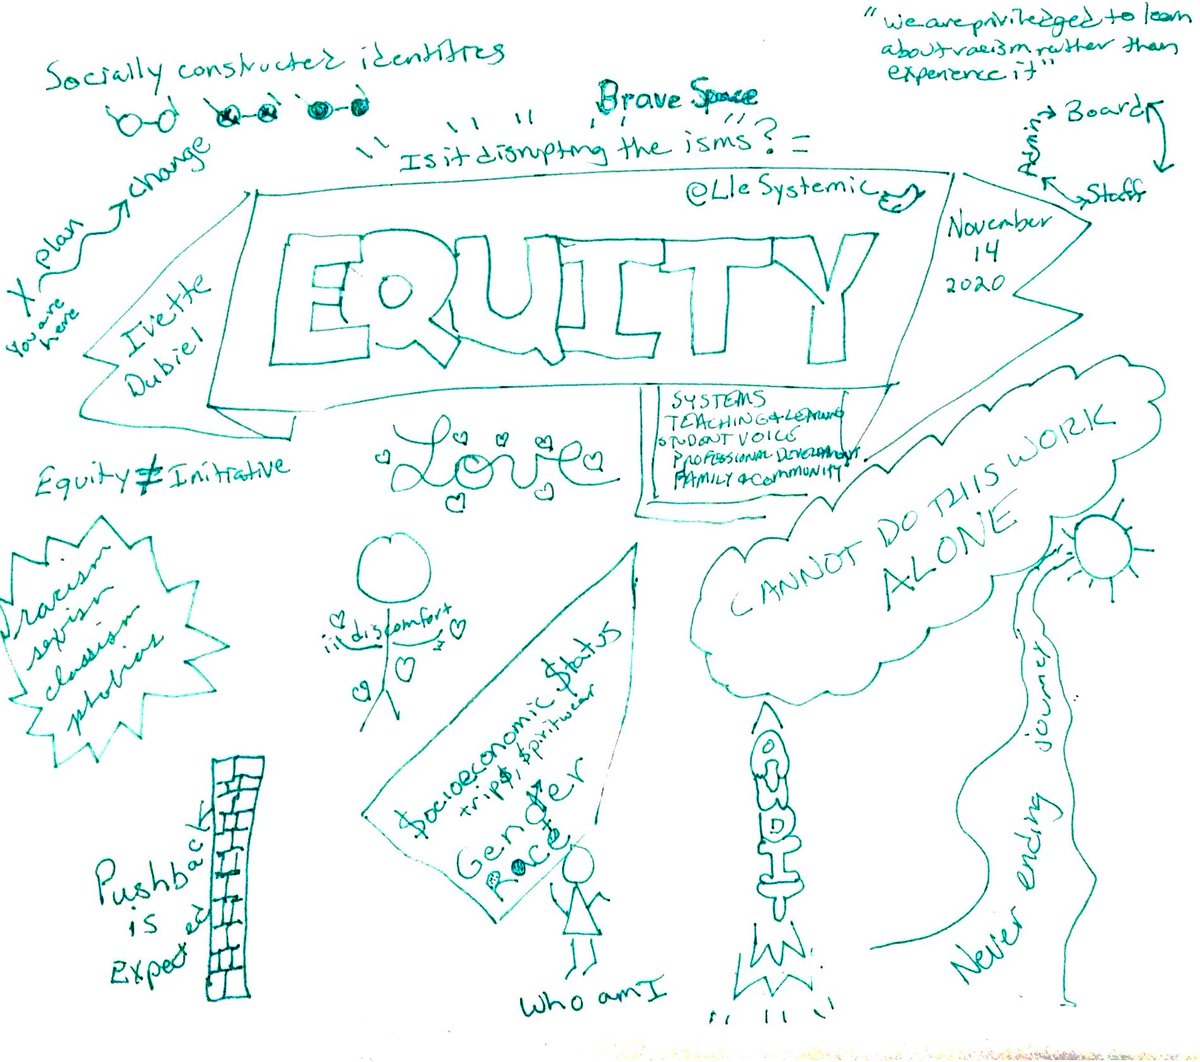 "we are priviledged to learn
about racism rather than
experience it"
Socially constructed identities
Brave Space
Is it disrupting the isms? =
Board
Admin
Staff
change
plan
X
You are
here
@LleSystemic
EQUITY
November
14
2020
Ivette
Dubiel
SYSTEMS
TEACHING & LEARNING
STUDENT VOICE
PROFESSIONAL DEVELOPMENT
FAMILY & COMMUNITY
Love
Equity ≠ Initiative
CANNOT DO THIS WORK
ALONE
racism
sexism
classism
phobias
discomfort
$ocioeconomic $tatus
trip$, $piritwear
Gender
Race
Pushback
is
expected
Who am I
Never ending journey